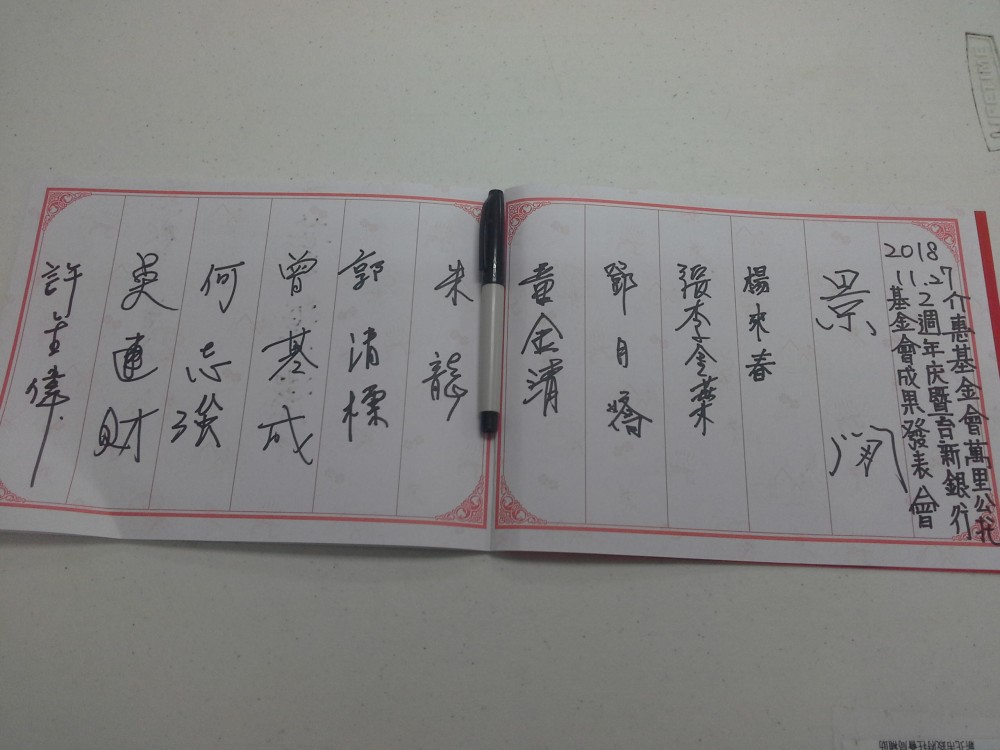 2018
11.27介惠基金會萬里公托
2週年庆暨台新銀行
基金會成果發表會
景
楊來春
張李金葉
鄧月
童金清
朱龍
郭清標
曾基成
何志強
吳連財
許偉